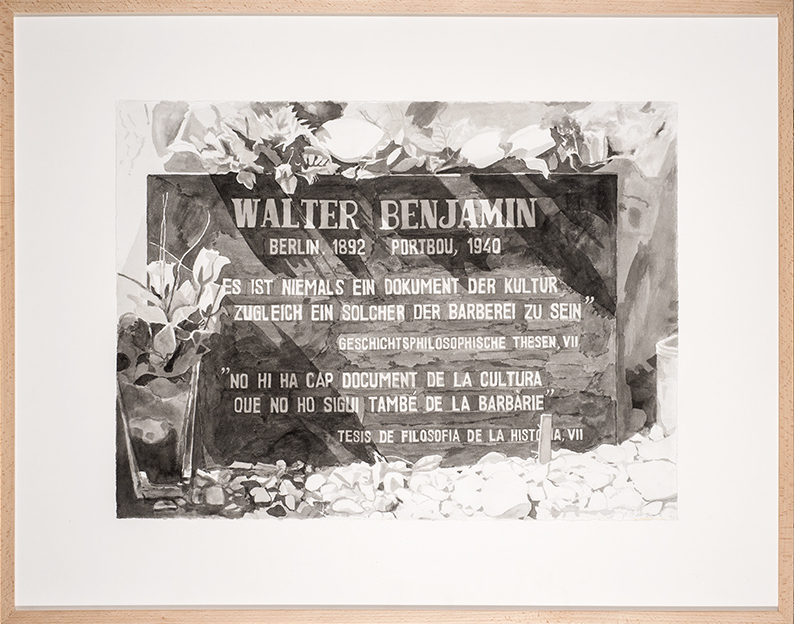 WALTER BENJAMIN
BERLIN, 1892 PORTBOU, 1940
ES IST NIEMALS EIN DOKUMENT DER KULTUR
ZUGLEICH EIN SOLCHER DER BARBEREI ZU SEIN”
GESCHICHTSPHILOSOPHISCHE THESEN, VII
”NO HI HA CAP DOCUMENT DE LA CULTURA
QUE NO HO SIGUI TAMBÉ DE LA BARBÀRIE”
TESIS DE FILOSOFIA DE LA HISTORIA, VII